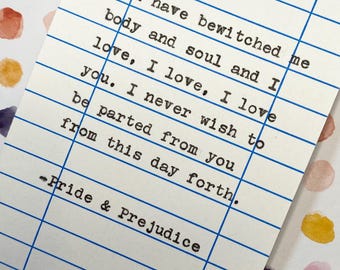 have bewitched me
body and soul and I
love, I love, I love
you. I never wish to
be parted from you
from this day forth.
-Pride & Prejudice